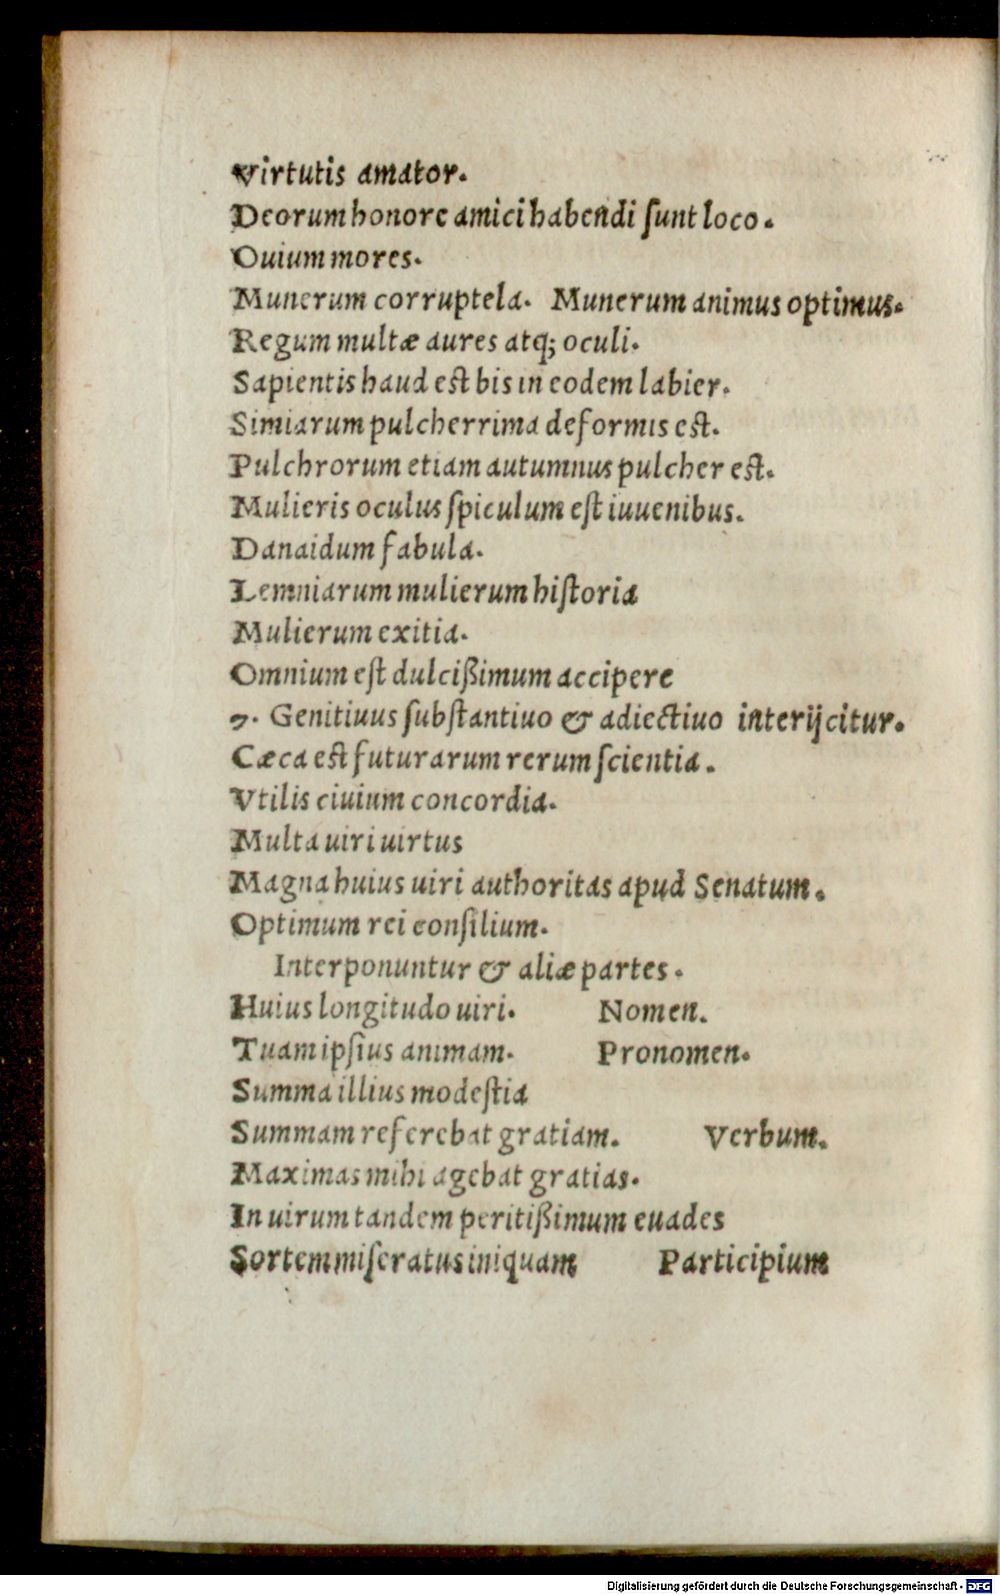 Virtutis amator.
Deorum honore amici habendi ſunt loco.
Ouium mores.
Munerum corruptela. Munerum animus optimus.
Regum multæ aures atq; oculi.
Sapientis haud eſt bis in eodem labier.
Simiarum pulcherrima deformis eſt.
Pulchrorum etiam autumnus pulcher eſt.
Mulieris oculus ſpiculum eſt iuuenibus.
Danaidum fabula.
Lemniarum mulierum hiſtoria
Mulierum exitia.
Omnium eſt dulcißimum accipere
7. Genitiuus ſubſtantiuo & adiectiuo interijcitur.
Cæca eſt futurarum rerum ſcientia.
Vtilis ciuium concordia.
Multa uiri uirtus
Magna huius uiri authoritas apud Senatum.
Optimum rei conſilium.
Interponuntur & aliæ partes.
Huius longitudo uiri. Nomen.
Tuam ipſius animam. Pronomen.
Summa illius modeſtia
Summam referebat gratiam. Verbum.
Maximas mihi agebat gratias.
In uirum tandem peritißimum euades
Sortem miſeratus iniquam Participium
Digitalisierung gefördert durch die Deutsche Forschungsgemeinschaft - DFG